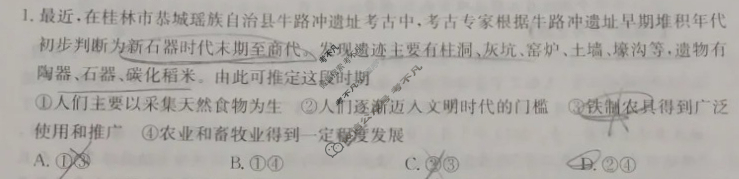 1. 最近，在桂林市恭城瑶族自治县牛路冲遗址考古中，考古专家根据牛路冲遗址早期堆积年代
初步判断为新石器时代末期至商代。发现遗迹主要有柱洞、灰坑、窑炉、土墙、壕沟等，遗物有
陶器、石器、碳化稻米。由此可推定这段时期
①人们主要以采集天然食物为生 ②人们逐渐迈入文明时代的门槛 ③铁制农具得到广泛
使用和推广 ④农业和畜牧业得到一定程度发展
A. ①③ B. ①④ C. ②③ D. ②④